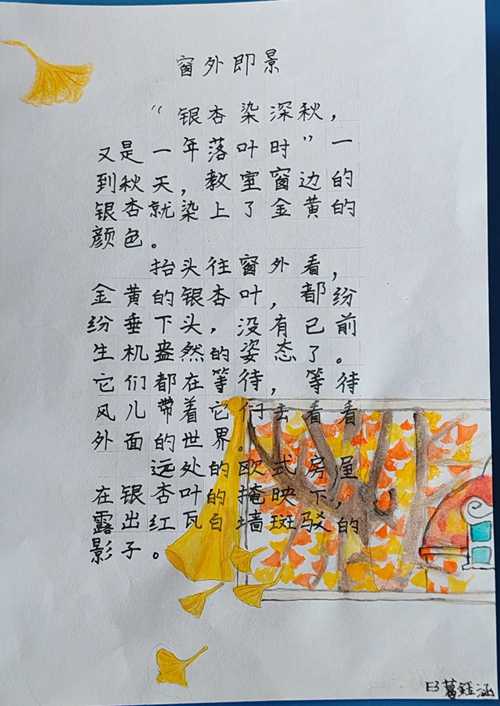 窗外即景
“银杏染深秋，
又是一年落叶时”一
到秋天，教室窗边的
银杏就染上了金黄的
颜色。
抬头往窗外看，
金黄的银杏叶，都纷
纷垂下头，没有已前
生机盎然的姿态了。
它们都在等待，等待
风儿带着它们去看看
外面的世界。
远处的欧式房屋
在银杏叶的掩映下，
露出红瓦白墙斑驳的
影子。